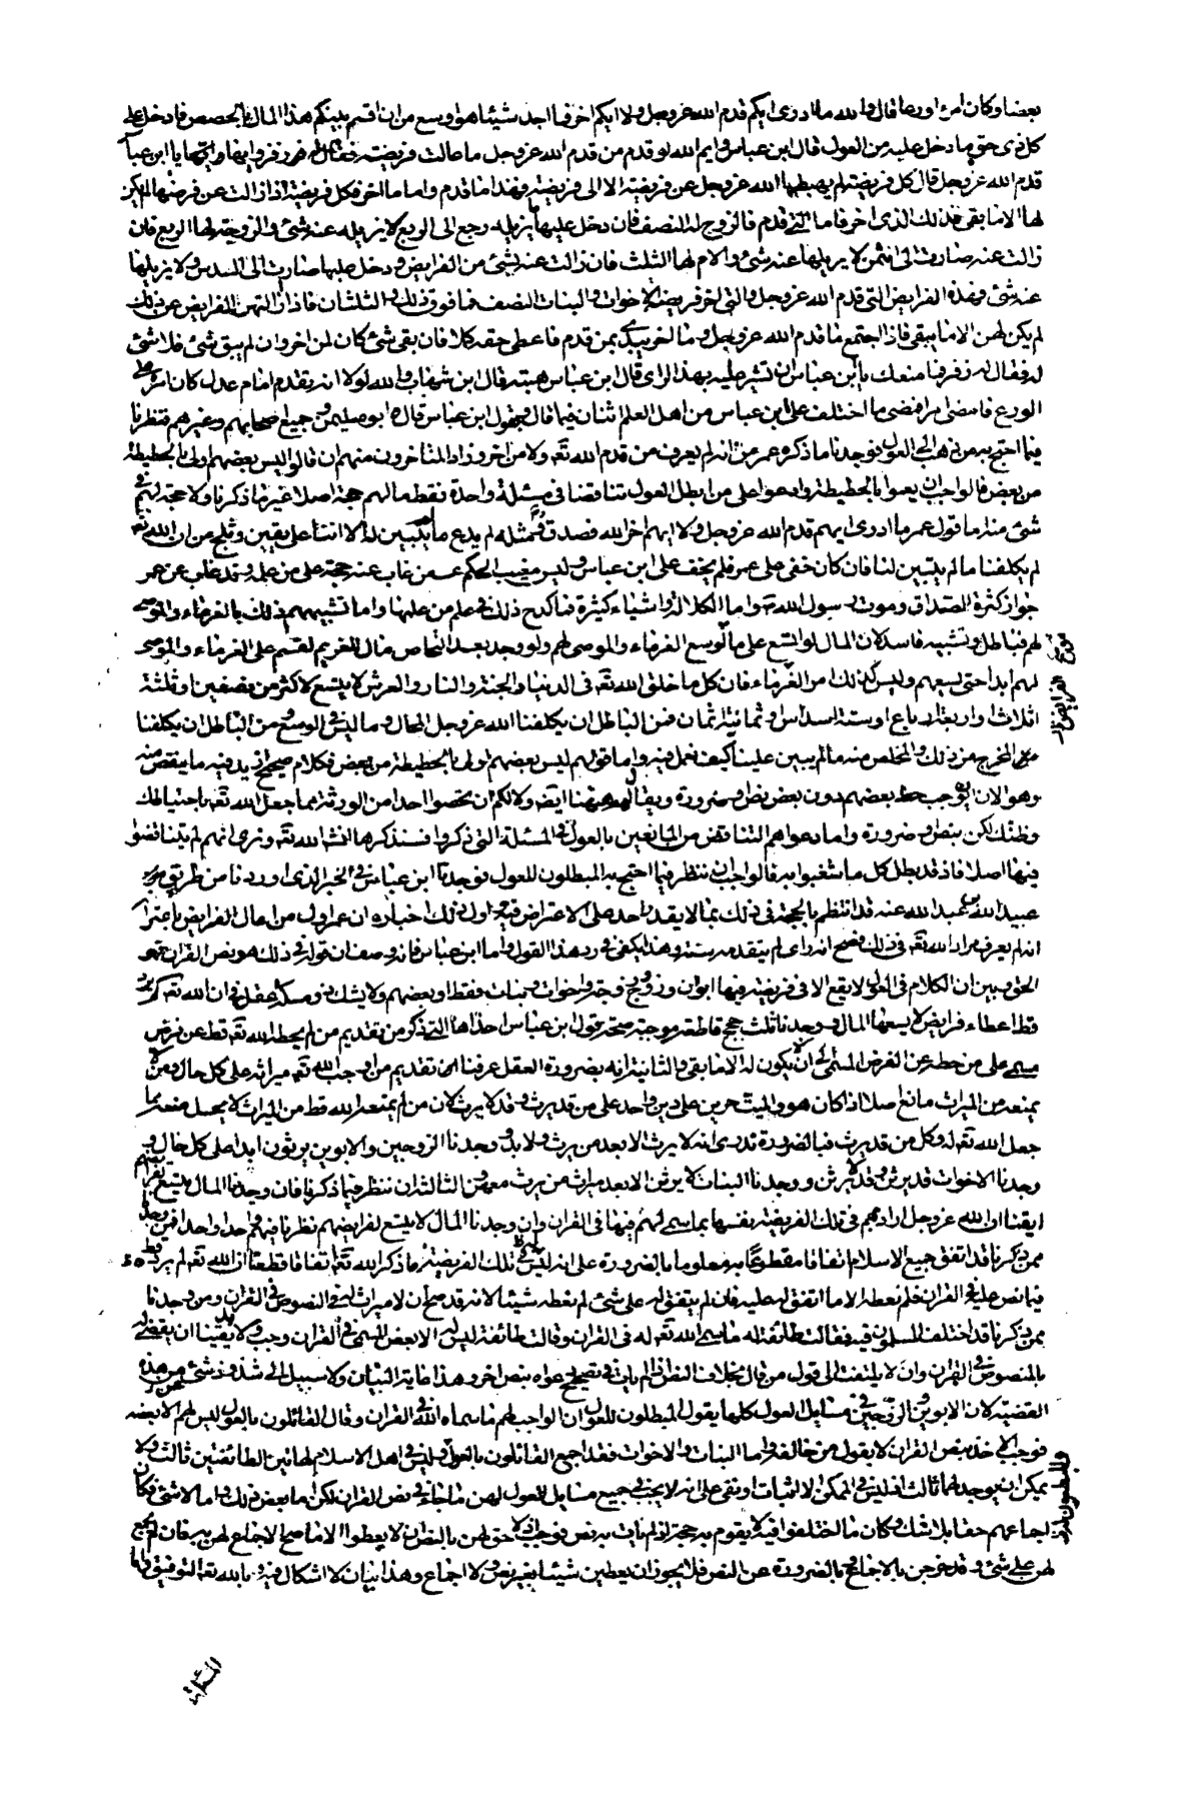 بعضا وكان امرءا ورعا قال والله ما ادرى ايكم قدم الله عز وجل ولا ايكم اخر فما اجد شيئا هو اوسع من ان اقسم بينكم هذا المال بالحصص فادخل على
كل ذى حق ما دخل عليه من العول قال ابن عباس وايم الله لو قدم من قدم الله عز وجل ما عالت فريضة فقال له زفر وايها يا ابن عباس
قدم الله عز وجل قال كل فريضة لم يهبطها الله عز وجل عن فريضة الا الى فريضة فهذا ما قدم واما ما اخر فكل فريضة اذا زالت عن فرضها لم يكن
لها الا ما بقى فذلك الذى اخر فاما التى قدم فالزوج له النصف فان دخل عليه ما يزيله رجع الى الربع لا يزايله عنه شئ والزوجة لها الربع فان
زالت عنه صارت الى الثمن لا يزيلها عنه شئ والام لها الثلث فان زالت عنه بشئ من الفرايض ودخل عليها صارت الى السدس ولا يزيلها
عنه شئ فهذه الفرايض التى قدم الله عز وجل والتى اخر فريضة الاخوات والبنات النصف فما فوق ذلك والثلثان فاذا ازالتهن الفرايض عن ذلك
لم يكن لهن الا ما يبقى فاذا اجتمع ما قدم الله عز وجل وما اخر بدئ بمن قدم فاعطى حقه كلا فان بقى شئ كان لمن اخر وان لم يبق شئ فلا شئ
له فقال له زفر فما منعك يا ابن عباس ان تشير عليه بهذا الراى قال ابن عباس هبته قال ابن شهاب والله لولا انه تقدم امام عدل كان امره على
الورع فامضى امرا فمضى ما اختلف على ابن عباس من اهل العلم اثنان فيما قال وبقول ابن عباس قال ابو سليمن وجميع اصحابهم وغيرهم فنظرنا
فيما احتج به من ذهب الى العول فوجدنا ما ذكره عمر من انه لم يعرف من قدم الله تعه ولا من اخر وزاد المتاخرون منهم ان قالوا ليس بعضهم اولى بالحطيطة
من بعض فالواجب ان يعموا بالحطيطة وادعوا على من ابطل العول تناقضا فى مسئلة واحدة فقط ما لهم حجة اصلا غير ما ذكرنا ولا حجة لهم فى
شئ منه اما قول عمر ما ادرى ايهم قدم الله عز وجل ولا ايهم اخر الله فصدق ومثله لم يدع ما لم يتبين له الا اننا على يقين وثلج من ان الله تعه
لم يكلفنا ما لم يتبين لنا فان كان خفى على عمر فلم يخف على ابن عباس وليس مغيب الحكم عمن غاب عنه حجة على من علمه وقد غاب عن عمر
جواز كثرة الصداق وموت رسول الله صلعم واما الكلالة واشياء كثيرة فما كدح ذلك فى علم من علمها واما تشبيههم ذلك بالغرماء والموصى
لهم فباطل وتشبيه فاسد لان المال لو اتسع على ما لوسع الغرماء والموصى لهم ولو وجد بعد التحاص مال للغريم لقسم على الغرماء والموصى
لهم ابدا حتى يسعهم وليس كذلك امر الغرماء فان كل ما خلق الله تعه فى الدنيا والجنة والنار والعرش لا يتسع لاكثر من نصفين او ثلثة
اثلاث او اربعة ارباع او ستة اسداس او ثمانية اثمان فمن الباطل ان يكلفنا الله عز وجل المحال وما ليس فى الوسع ومن الباطل ان يكلفنا
من المخرج من ذلك والمخلص منه ما لم يبين علينا كيف نعمل فيه واما قولهم ليس بعضهم اولى بالحطيطة من بعض فكلام صحيح ان زيد فيه ما ينقص منه
وهو الا ان يوجب حط بعضهم دون بعض نص او ضرورة ويقال لهم ههنا ايضه ولا لكم ان تخصوا احدا من الورثة مما جعل الله تعه باحتياطك
وظنك لكن بنص او ضرورة واما دعواهم التناقض من المانعين بالعول فى المسئلة التى ذكروا فسنذكرها انشاء الله تعه ونرى انهم لم يتناقضوا
فيها اصلا فاذ قد بطل كل ما شغبوا به فالواجب ان ننظر فيما احتج به المبطلون للعول فوجدنا ابن عباس فى الخبر الذى اوردنا من طريق
عبيد الله بن عبد الله عنه قد انتظم بالحجة فى ذلك بما لا يقدر احد على الاعتراض فيه اول ذلك اخباره ان عمر اول من اعال الفرايض باعترافه
انه لم يعرف مراد الله تعه فى ذلك فصح انه راى لم يتقدمه سنة وهذا يكفى فى رد هذا القول واما ابن عباس فانه وصف ان قوله فى ذلك هو نص القران فهو
الحق وبين ان الكلام فى العول لا يقع الا فى فريضة فيها ابوان وزوج وزوجة واخوات وبنات فقط او بعضهم ولا يشك ذو مسكة عقل فى ان الله تعه لم يرد
قط اعطاء فرايض لا يسعها المال ووجدنا ثلث حجج قاطعة موجبة صحة قول ابن عباس احداها التى ذكر من تقديم من لم يحطه الله تعه قط عن فرض
مسمى على من حطه عن الفرض المسمى الى ان لا يكون له الا ما بقى والثانية انه بضرورة العقل عرفنا ان تقديم من اوجب الله تعه ميراثه على كل حال ومن لا
يمنعه من الميراث مانع اصلا اذا كان هو والميت حرين على دين واحد على من قد يرث وقد لا يرث لان من لم يمنعه الله قط من الميراث لا يحل منعه مما
جعل الله تعه له وكل من قد يرث فبالضرورة ندرى انه لا يرث الا بعد من يرث ولا بد ووجدنا الزوجين والابوين يرثون ابدا على كل حال و
وجدنا الاخوات قد يرثن وقد لا يرثن ووجدنا البنات لا يرثن الا بعد ميراث من يرث معهن والثالثة ان ننظر فيما ذكرنا فان وجدنا المال يتسع لفرايضهم
ايقنا ان الله عز وجل ارادهم فى تلك الفريضة نفسها بما سمى لهم فيها فى القران وان وجدنا المال لا يتسع لفرايضهم نظرنا فيهم واحدا واحدا فمن وجدنا
ممن ذكرنا قد اتفق جميع الاسلام اتفاقا مقطوعا به معلوما بالضرورة على انه ليس له فى تلك الفريضة ما ذكر الله تعه اتفاقا قطعنا ان الله تعه لم يرد قط
فيما نص عليه فى القران فلم نعطه الا ما اتفق له عليه فان لم يتفق له على شئ لم نعطه شيئا لانه قد صح ان لا ميراث له فى النصوص فى القران ومن وجدنا
ممن ذكرنا قد اختلف المسلمون فيه فقالت طائفة له ما سمى الله تعه له فى القران وقالت طائفة ليس له الا بعض المسمى فى القران وجب ولا بد يقينا ان يقضى له
بالمنصوص فى القران وان لا يلتفت الى قول من قال بخلاف النص اذ لم يات فى تصحيح دعواه بنص اخر وهذا غاية البيان ولا سبيل الى شذوذ شئ عن هذه
القضية لان الابوين والزوجين فى مسايل العول كلها يقول المبطلون للعول ان الواجب لهم ما سماه الله فى القران وقال القائلون بالعول ليس لهم الا بعضه
فوجب الاخذ بنص القران لا بقول من خالفه واما البنات والاخوات فقد اجمع القائلون بالعول وليس فى اهل الاسلام لهاتين الطائفتين ثالث ولا
يمكن ان يوجد لهما ثالث اذ ليس فى الممكن الا اثبات او نفى على انه لا يجب فى جميع مسايل العول لهن ما جاء فى نص القران لكن اما بعض ذلك واما لا شئ فكان
اجماعهم حقا بلا شك وكان ما اختلفوا فيه لا يقوم به حجة اذ لم يات به نص فوجب اذ لا حق لهن بالنص ان لا يعطوا الا ما صح الاجماع لهن به فان لم يجمع
لهن على شئ وقد خرجن بالاجماع وبالضرورة عن النص فلا يجوز ان يعطين شيئا بغير نص ولا اجماع وهذا بيان لا اشكال فيه وبالله تعه التوفيق